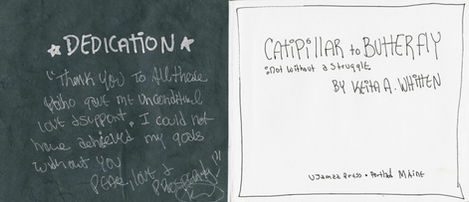 DEDICATION
"Thank you to All those
who gave me unconditional
love & support. I could not
have achieved my goals
without you
Peace, love &
PROSPERITY"
CATIPillAR to BUTTERFLY
Not without a Struggle
BY Keita A. Whitten
UJamaa Press • Portland MAINE